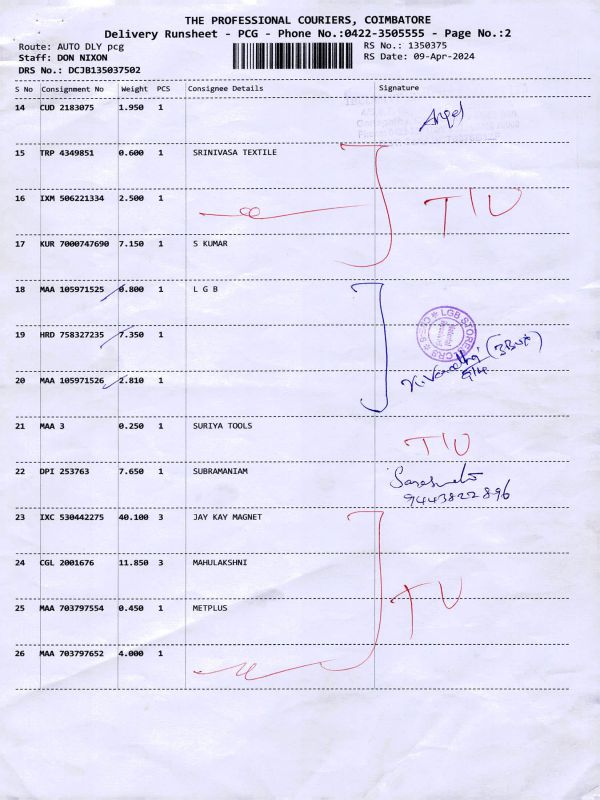 THE PROFESSIONAL COURIERS, COIMBATORE
Delivery Runsheet - PCG - Phone No.:0422-3505555 - Page No.:2
Route: AUTO DLY pcg
RS No.: 1350375
Staff: DON NIXON
RS Date: 09-Apr-2024
DRS No.: DCJB135037502
S No Consignment No Weight PCS Consignee Details Signature
14 CUD 2183075 1.950 1 Angel
15 TRP 4349851 0.600 1 SRINIVASA TEXTILE
16 IXM 506221334 2.500 1 TIU
17 KUR 7000747690 7.150 1 S KUMAR
18 MAA 105971525 0.800 1 L G B
19 HRD 758327235 7.350 1
LGB STORE
20 MAA 105971526 2.810 1
21 MAA 3 0.250 1 SURIYA TOOLS TIU
22 DPI 253763 7.650 1 SUBRAMANIAM
9443822896
23 IXC 530442275 40.100 3 JAY KAY MAGNET
24 CGL 2001676 11.850 3 MAHULAKSHNI
TU
25 MAA 703797554 0.450 1 METPLUS
26 MAA 703797652 4.000 1